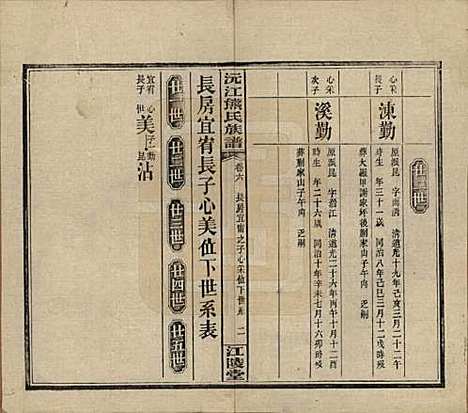 廿二世
心宋
長子
涷勤
原派昆 字雨清 清道光十九年己亥三月二十二午
時生 年三十一歲 同治八年己巳三月十二戌時歿
葬大嶺甲謝家坪後山子午向 乏嗣
心宋
次子
溪勤
原派昆 字濟江 清道光二十六年丙午十月十二酉
時生 年二十六歲 同治十年辛未七月十六卯時歿
葬蒯家山子午向 乏嗣
沅江熊氏族譜
卷六 長房宜甯之子心宋位下世系 二
江陵堂
長房宜甯長子心美位下世系表
廿一世
廿二世
廿三世
廿四世
廿五世
宜甯
長子
心
世
美
子
勤
昆
沾